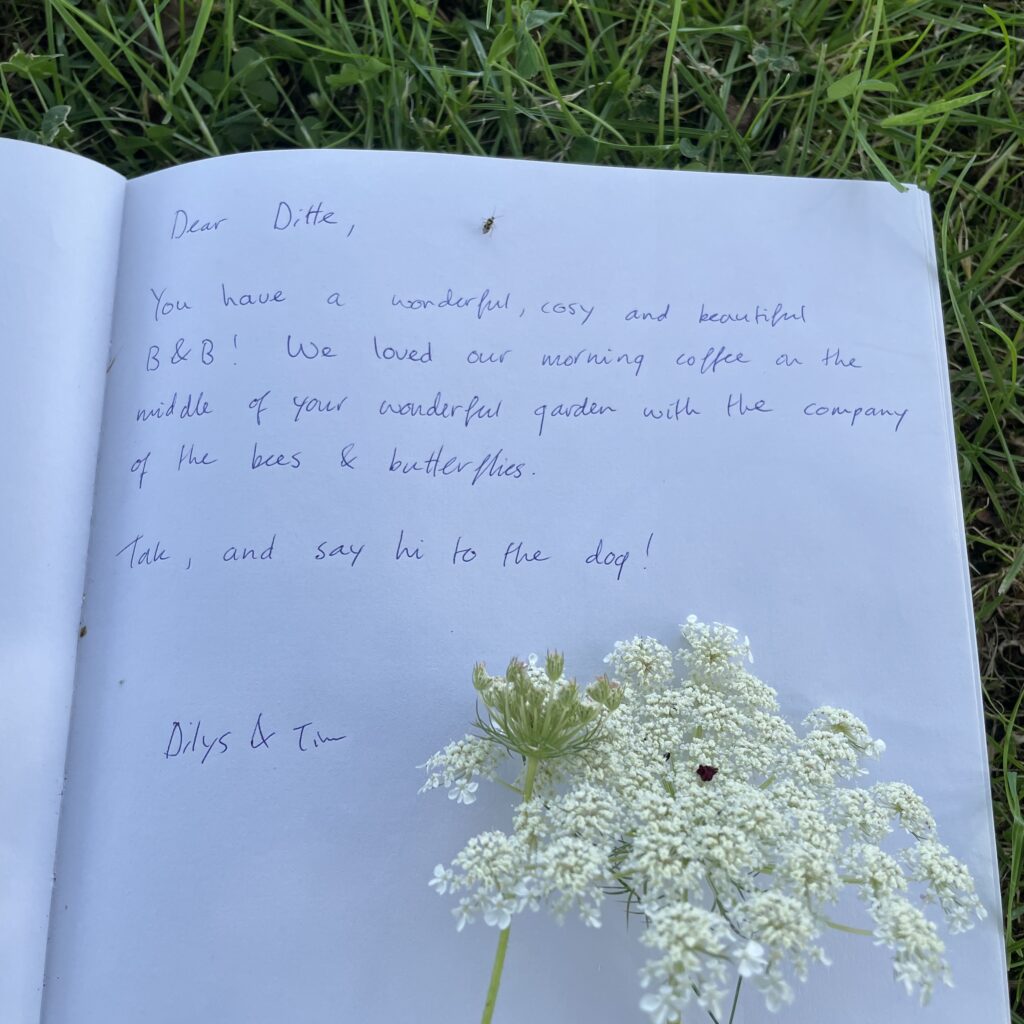 Dear Ditte,
You have a wonderful, cosy and beautiful
B&B! We loved our morning coffee on the
middle of your wonderful garden with the company
of the bees & butterflies.
Tak, and say hi to the dog!
Dilys & Tim